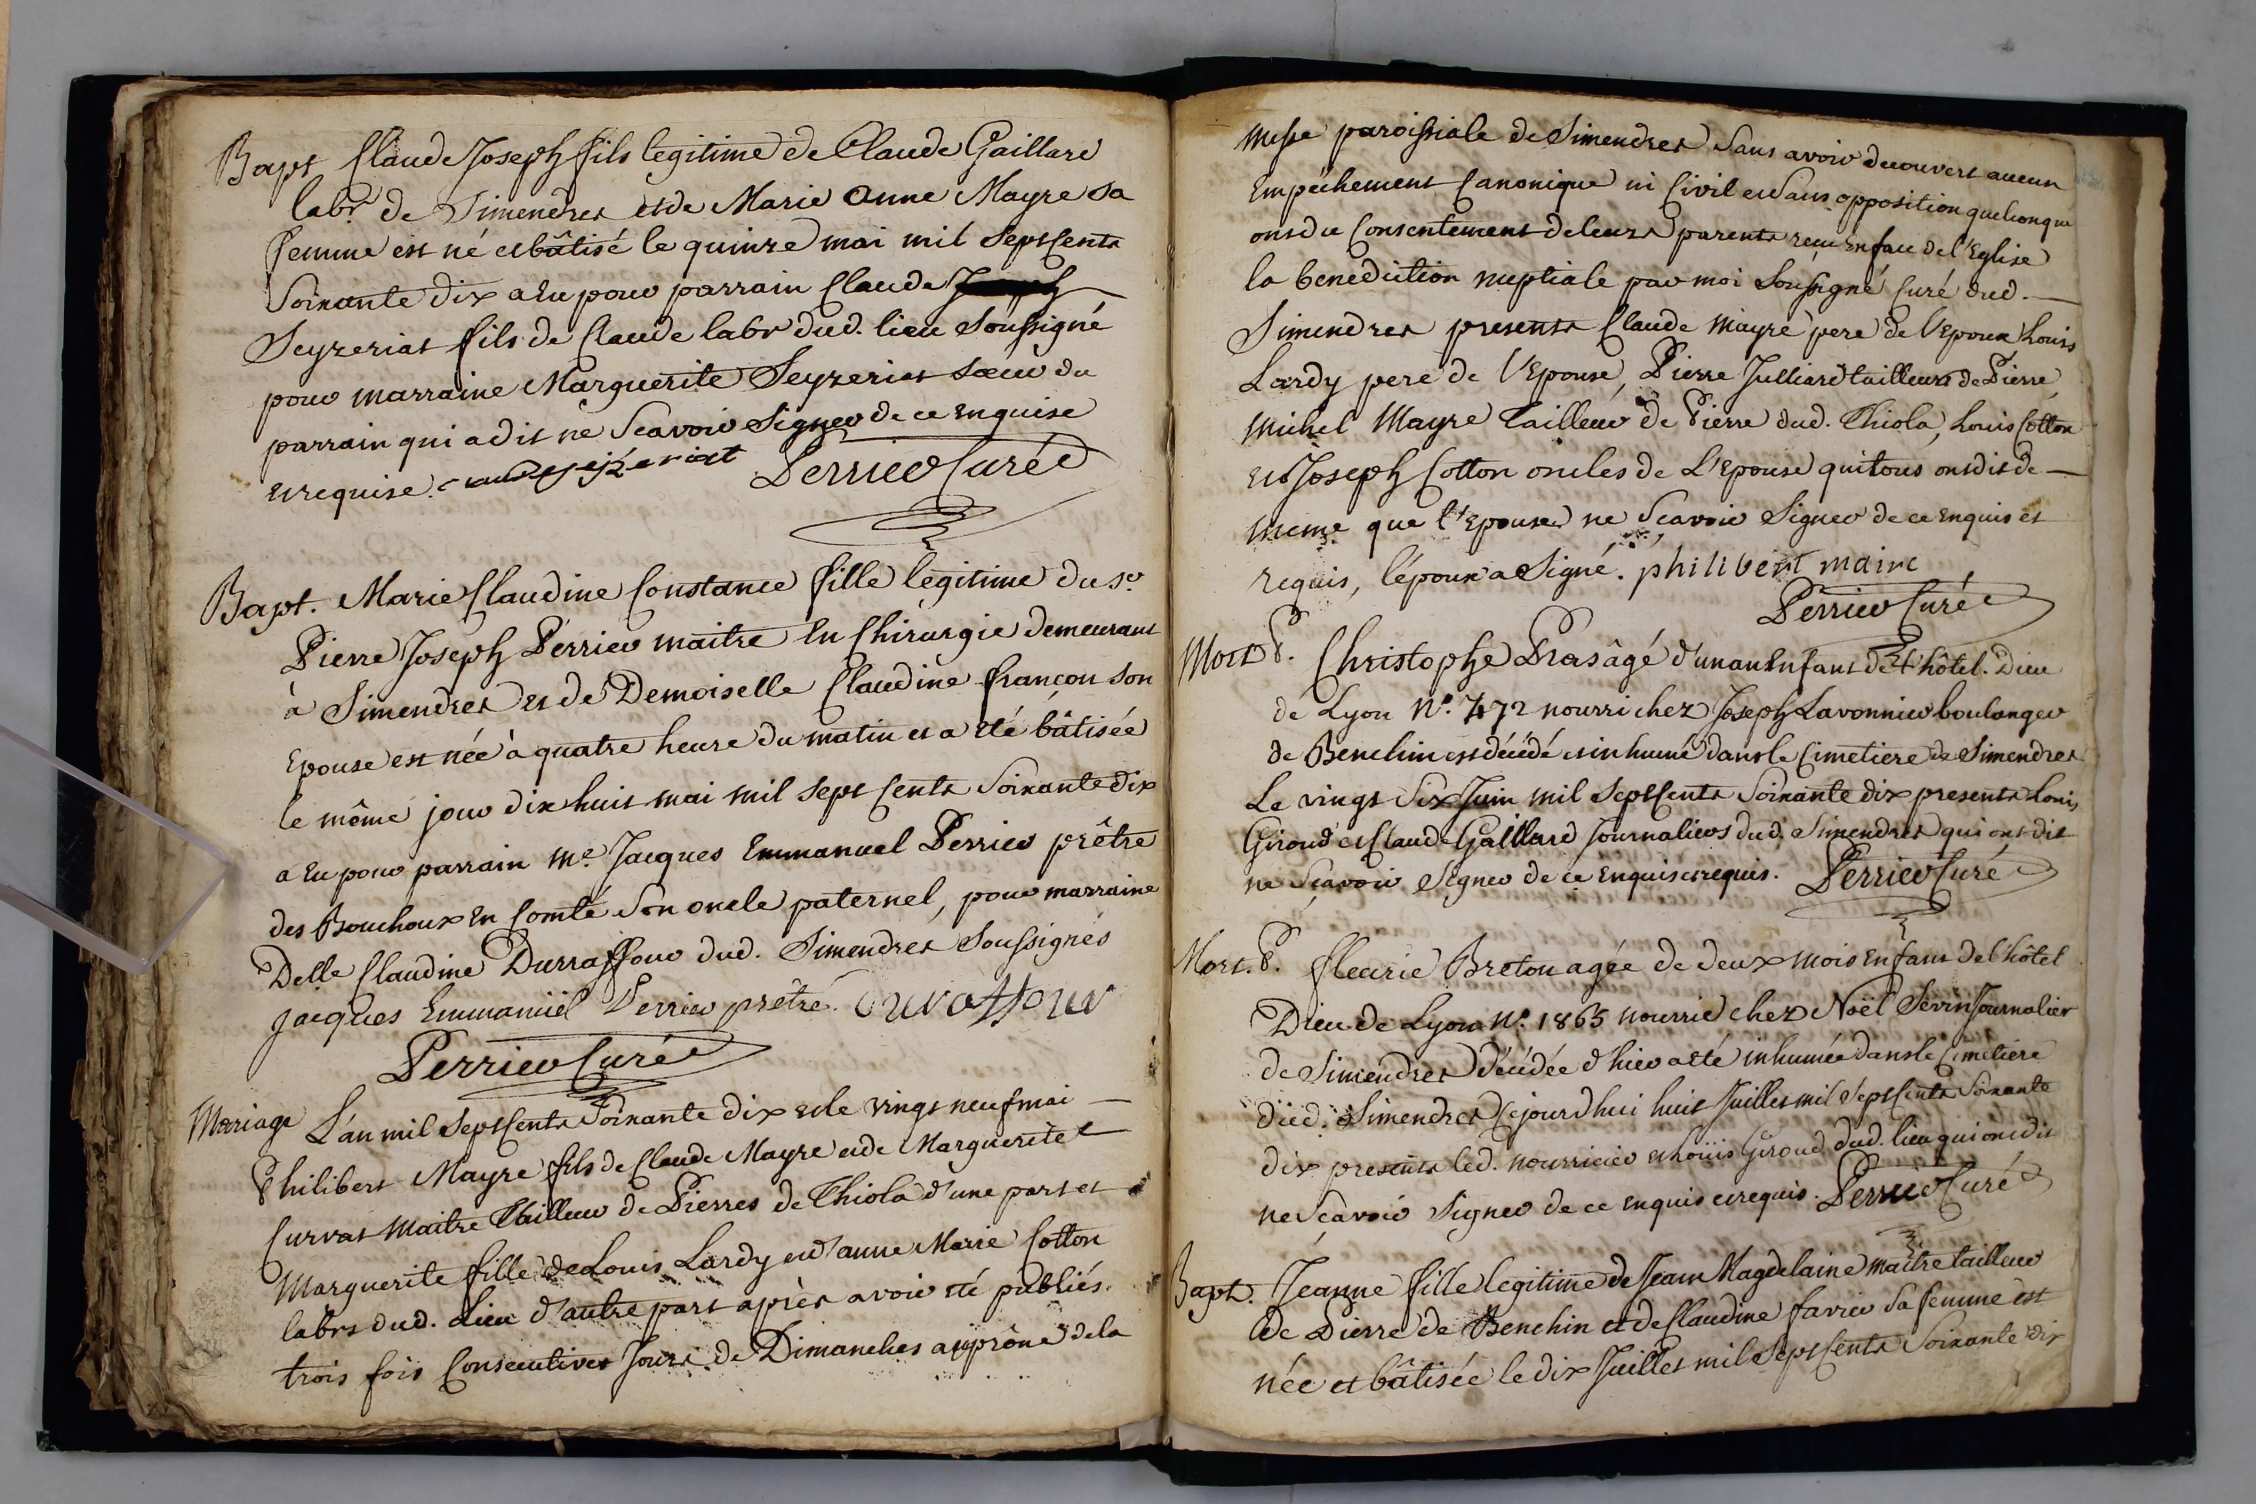 Bapt Claude Joseph fils legitime de Claude Gaillard
labr de Simendres et de Marie Anne Mayre sa
femme est né et bâtisé le quinze mai mil Sept Cents
Soixante dix a Eu pour parrain Claude
Seyzeriat fils de Claude labr dud. lieu Soussigné
pour marraine Marguerite Seyzeriat soeur du
parrain qui a dit ne Scavoir Signer de ce Enquise
et requise. claude seyzeriat Perrier Curé
Bapt. Marie Claudine Constance fille legitime du Sr
Pierre Joseph Perrier maitre En Chirurgie demeurant
à Simendres et de Demoiselle Claudine françon son
Epouse est née à quatre heure du matin et a eté bâtisée
le même jour dix huit mai mil sept Cents Soixante dix
a Eu pour parrain Me Jacques Emmanuel Perrier prêtre
des Bouchoux En Comté son oncle paternel, pour marraine
Delle Claudine Durraffour dud. Simendres Soussignés
Jacques Emmanüel Perrier prêtre. Duraffour
Perrier Curé
Mariage L'an mil Sept Cents Soixante dix et le vingt neuf mai
Philibert Mayre fils de Claude Mayre et de Marguerite
Curvat Maitre Tailleur de Pierres de Thiola d'une part et
Marguerite fille de Louis Lardy et d'anne Marie Cotton
labrs dud. Lieu d'autre part après avoir eté publiés
trois fois Consecutives Jours de Dimanches au prône de la
Messe paroissiale de Simendres Sans avoir decouvert aucun
Empêchement Canonique ni Civil et Sans opposition quelconque
ont du Consentement de leurs parents recu En face de l'Eglise
la benediction nuptiale par moi Soussigné Curé dud.
Simendres presents Claude Mayre pere de l'Epoux Louis
Lardy pere de l'Epouse, Pierre Julliard tailleurs de Pierre
Michel Mayre Tailleur de Pierre dud. Thiola, Louis Cotton
et Joseph Cotton oncles de L'Epouse qui tous ont dit de
même que l'Epouse ne Scavoir Signer de ce Enquis et
requis, l'époux a Signé. philibert maire
Perrier Curé
Mort P. Christophe Pras âgé d'un an Enfant de l'hôtel-Dieu
de Lyon No. 472 nourri chez Joseph Lavonnier boulanger
de Benchin est décédé et inhumé dans le Cimetiere de Simendres
Le vingt Six Juin mil Sept Cents Soixante dix presents Louis
Giroud et Claude Gaillard Journaliers dud. Simendres qui ont dit
ne Scavoir Signer de ce Enquis et requis. Perrier Curé
Mort. P. fleurie Breton agée de deux mois Enfant de l'hôtel
Dieu de Lyon No. 1865 nourrie chez Noël Sevin Journalier
de Simendres décédée d'hier a eté inhumée dans le Cimetiere
dud. Simendres Cejourd'hui huit Juillet mil Sept Cents Soixante
dix presents led. nourricier et Louis Giroud dud. lieu qui ont dit
ne Scavoir Signer de ce enquis et requis. Perrier Curé
Bapt. Jeanne fille legitime de Jean Magdelaine maitre tailleur
de Pierre de Benchin et de Claudine favier Sa femme est
née et bâtisée le dix Juillet mil Sept Cents Soixante dix